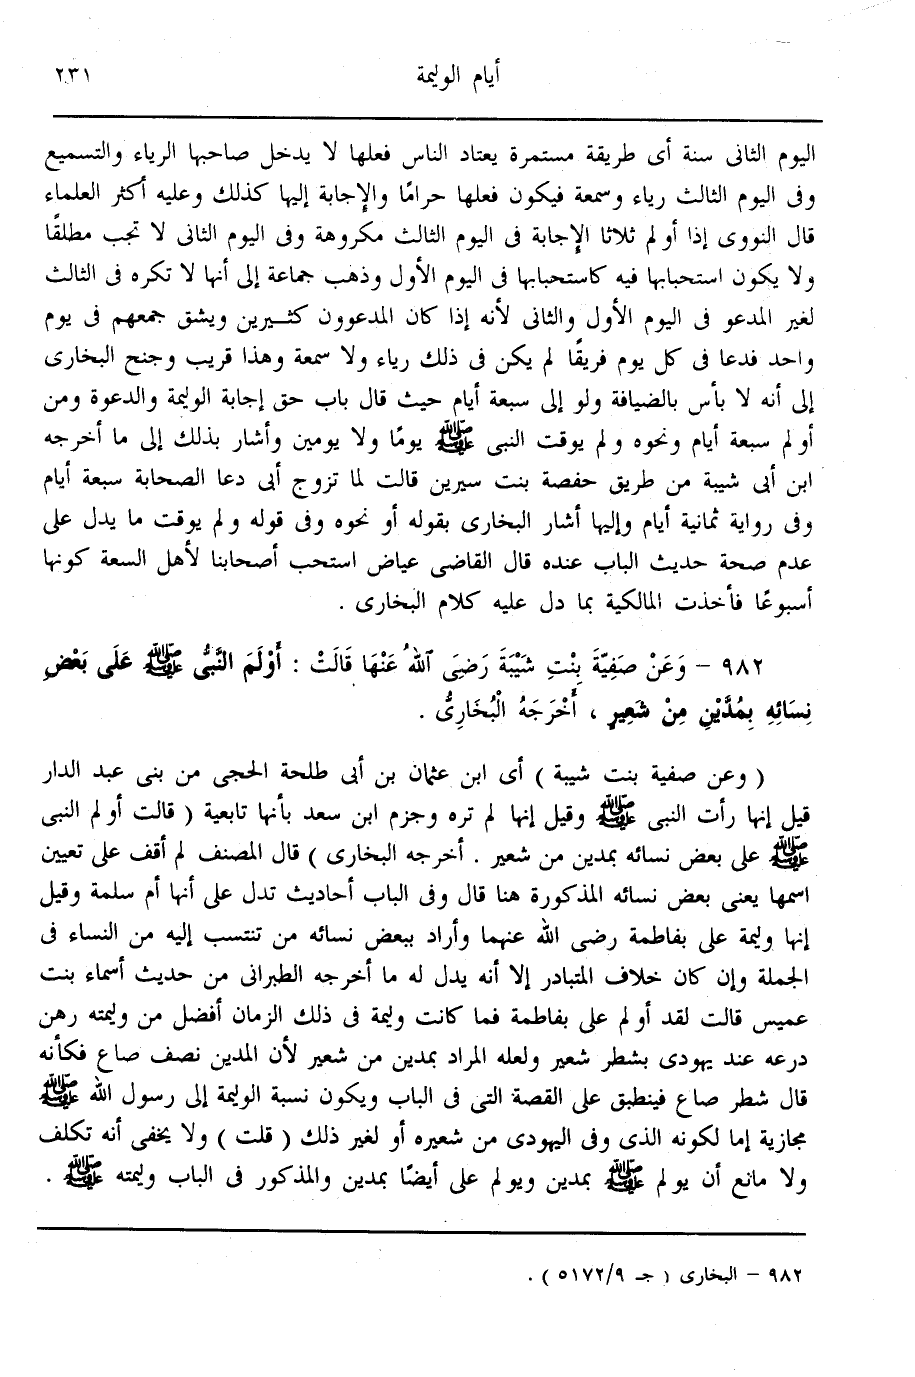 أيام الوليمة ٢٣١
اليوم الثانى سنة أى طريقة مستمرة يعتاد الناس فعلها لا يدخل صاحبها الرياء والتسميع
وفى اليوم الثالث رياء وسمعة فيكون فعلها حرامًا والإجابة إليها كذلك وعليه أكثر العلماء
قال النووى إذا أولم ثلاثا الإجابة فى اليوم الثالث مكروهة وفى اليوم الثانى لا تجب مطلقًا
ولا يكون استحبابها فيه كاستحبابها فى اليوم الأول وذهب جماعة إلى أنها لا تكره فى الثالث
لغير المدعو فى اليوم الأول والثانى لأنه إذا كان المدعوون كثـيرين ويشق جمعهم فى يوم
واحد فدعا فى كل يوم فريقًا لم يكن فى ذلك رياء ولا سمعة وهذا قريب وجنح البخارى
إلى أنه لا بأس بالضيافة ولو إلى سبعة أيام حيث قال باب حق إجابة الوليمة والدعوة ومن
أولم سبعة أيام ونحوه ولم يوقت النبى ﷺ يومًا ولا يومين وأشار بذلك إلى ما أخرجه
ابن أبى شيبة من طريق حفصة بنت سيرين قالت لما تزوج أبى دعا الصحابة سبعة أيام
وفى رواية ثمانية أيام وإليها أشار البخارى بقوله أو نحوه وفى قوله ولم يوقت ما يدل على
عدم صحة حديث الباب عنده قال القاضى عياض استحب أصحابنا لأهل السعة كونها
أسبوعًا فأخذت المالكية بما دل عليه كلام البخارى .
٩٨٢ – وَعَنْ صَفِيَّةَ بِنْتِ شَيْبَةَ رَضِيَ ٱللهُ عَنْهَا قَالَتْ : أَوْلَمَ النَّبِىُّ ﷺ عَلَى بَعْضِ
نِسَائِهِ بِمُدَّيْنِ مِنْ شَعِيرٍ ، أَخْرَجَهُ الْبُخَارِىُّ .
( وعن صفية بنت شيبة ) أى ابن عثمان بن أبى طلحة الحجى من بنى عبد الدار
قيل إنها رأت النبى ﷺ وقيل إنها لم تره وجزم ابن سعد بأنها تابعية ( قالت أولم النبى
ﷺ على بعض نسائه بمدين من شعير . أخرجه البخارى ) قال المصنف لم أقف على تعيين
اسمها يعنى بعض نسائه المذكورة هنا قال وفى الباب أحاديث تدل على أنها أم سلمة وقيل
إنها وليمة على بفاطمة رضى الله عنهما وأراد ببعض نسائه من تنتسب إليه من النساء فى
الجملة وإن كان خلاف المتبادر إلا أنه يدل له ما أخرجه الطبرانى من حديث أسماء بنت
عميس قالت لقد أولم على بفاطمة فما كانت وليمة فى ذلك الزمان أفضل من وليمته رهن
درعه عند يهودى بشطر شعير ولعله المراد بمدين من شعير لأن المدين نصف صاع فكأنه
قال شطر صاع فينطبق على القصة التى فى الباب ويكون نسبة الوليمة إلى رسول الله ﷺ
مجازية إما لكونه الذى وفى اليهودى من شعيره أو لغير ذلك ( قلت ) ولا يخفى أنه تكلف
ولا مانع أن يولم ﷺ بمدين ويولم على أيضًا بمدين والمذكور فى الباب وليمته ﷺ .
٩٨٢ – البخارى ( جـ ٥١٧٢/٩ ) .